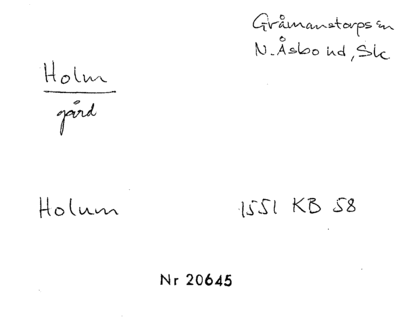 Gråmanstorps sn
N. Åsbo hd, Sk
Holm
gård
Holum
1551 KB 58
Nr 20645